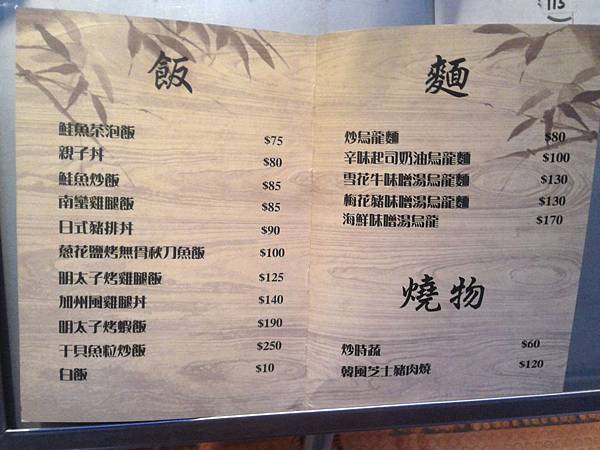 飯
鮭魚茶泡飯 $75
親子丼 $80
鮭魚炒飯 $85
南蠻雞腿飯 $85
日式豬排丼 $90
蔥花鹽烤無骨秋刀魚飯 $100
明太子烤雞腿飯 $125
加州風雞腿丼 $140
明太子烤蝦飯 $190
干貝魚粒炒飯 $250
白飯 $10
麵
炒烏龍麵 $80
辛味起司奶油烏龍麵 $100
雪花牛味噌湯烏龍麵 $130
梅花豬味噌湯烏龍麵 $130
海鮮味噌湯烏龍 $170
燒物
炒時蔬 $60
韓風芝士豬肉燒 $120
113